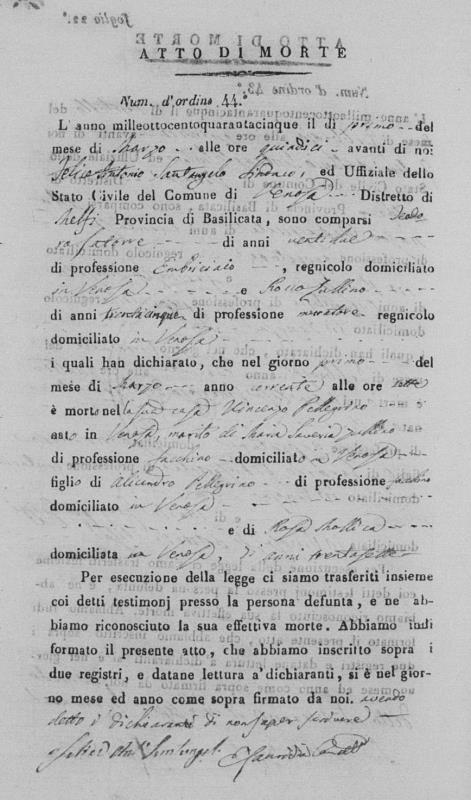 foglio 22.°
ATTO DI MORTE
Num. d'ordine 44.°
L'anno milleottocentoquarantacinque il dì primo del
mese di Marzo alle ore quindici avanti di noi
Felice Antonio Santangelo Sindaco, ed Uffiziale dello
Stato Civile del Comune di Venosa Distretto di
Melfi Provincia di Basilicata, sono comparsi Teodo
ro di anni ventidue
di professione Embriciaio, regnicolo domiciliato
in Venosa e Rocco
di anni trentacinque di professione regnicolo
domiciliato in Venosa
i quali han dichiarato, che nel giorno primo del
mese di Marzo anno corrente alle ore sette
è morto nella sua casa Vincenzo Pellegrino
nato in Venosa, marito di Maria Saveria
di professione facchino domiciliato in Venosa
figlio di Aliandro Pellegrino di professione
domiciliato in Venosa
e di Rosa Mollica
domiciliata in Venosa, di anni trentasette
Per esecuzione della legge ci siamo trasferiti insieme
coi detti testimonj presso la persona defunta, e ne ab-
biamo riconosciuto la sua effettiva morte. Abbiamo indi
formato il presente atto, che abbiamo inscritto sopra i
due registri, e datane lettura a' dichiaranti, si è nel gior-
no mese ed anno come sopra firmato da noi. avendo
detto i dichiaranti di non saper scrivere
Felice Ant. Santangelo